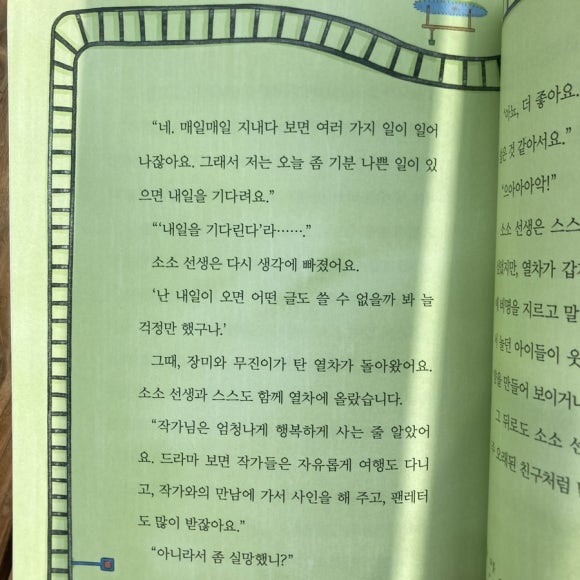 “네. 매일매일 지내다 보면 여러 가지 일이 일어
나잖아요. 그래서 저는 오늘 좀 기분 나쁜 일이 있
으면 내일을 기다려요.”
“‘내일을 기다린다’라…….”
소소 선생은 다시 생각에 빠졌어요.
‘난 내일이 오면 어떤 글도 쓸 수 없을까 봐 늘
걱정만 했구나.’
그때, 장미와 무진이가 탄 열차가 돌아왔어요.
소소 선생과 스스도 함께 열차에 올랐습니다.
“작가님은 엄청나게 행복하게 사는 줄 알았어
요. 드라마 보면 작가들은 자유롭게 여행도 다니
고, 작가와의 만남에 가서 사인을 해 주고, 팬레터
도 많이 받잖아요.”
“아니라서 좀 실망했니?”
더 좋아요.
것 같아서요.”
“으아아아악!”
소소 선생은 스스
열차가 갑
비명을 지르고 말
놀던 아이들이 웃
만들어 보이거나
그 뒤로도 소소 선
오래된 친구처럼